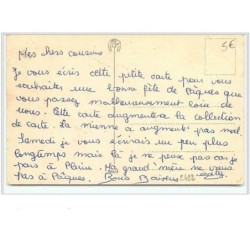 5€
Mes chers cousins
Je vous écris cette petite carte pour vous
souhaiter une bonne fête de Pâques que
vous passez malheureusement loin de
nous. Cette carte augmentera la collection
de carte. La mienne a augmenté pas mal.
Samedi je vous écrirais un peu plus
longtemps mais là je ne peux pas car je
pars à Ma grand'mère ne vous
pas à Pâques. Bons Baisers